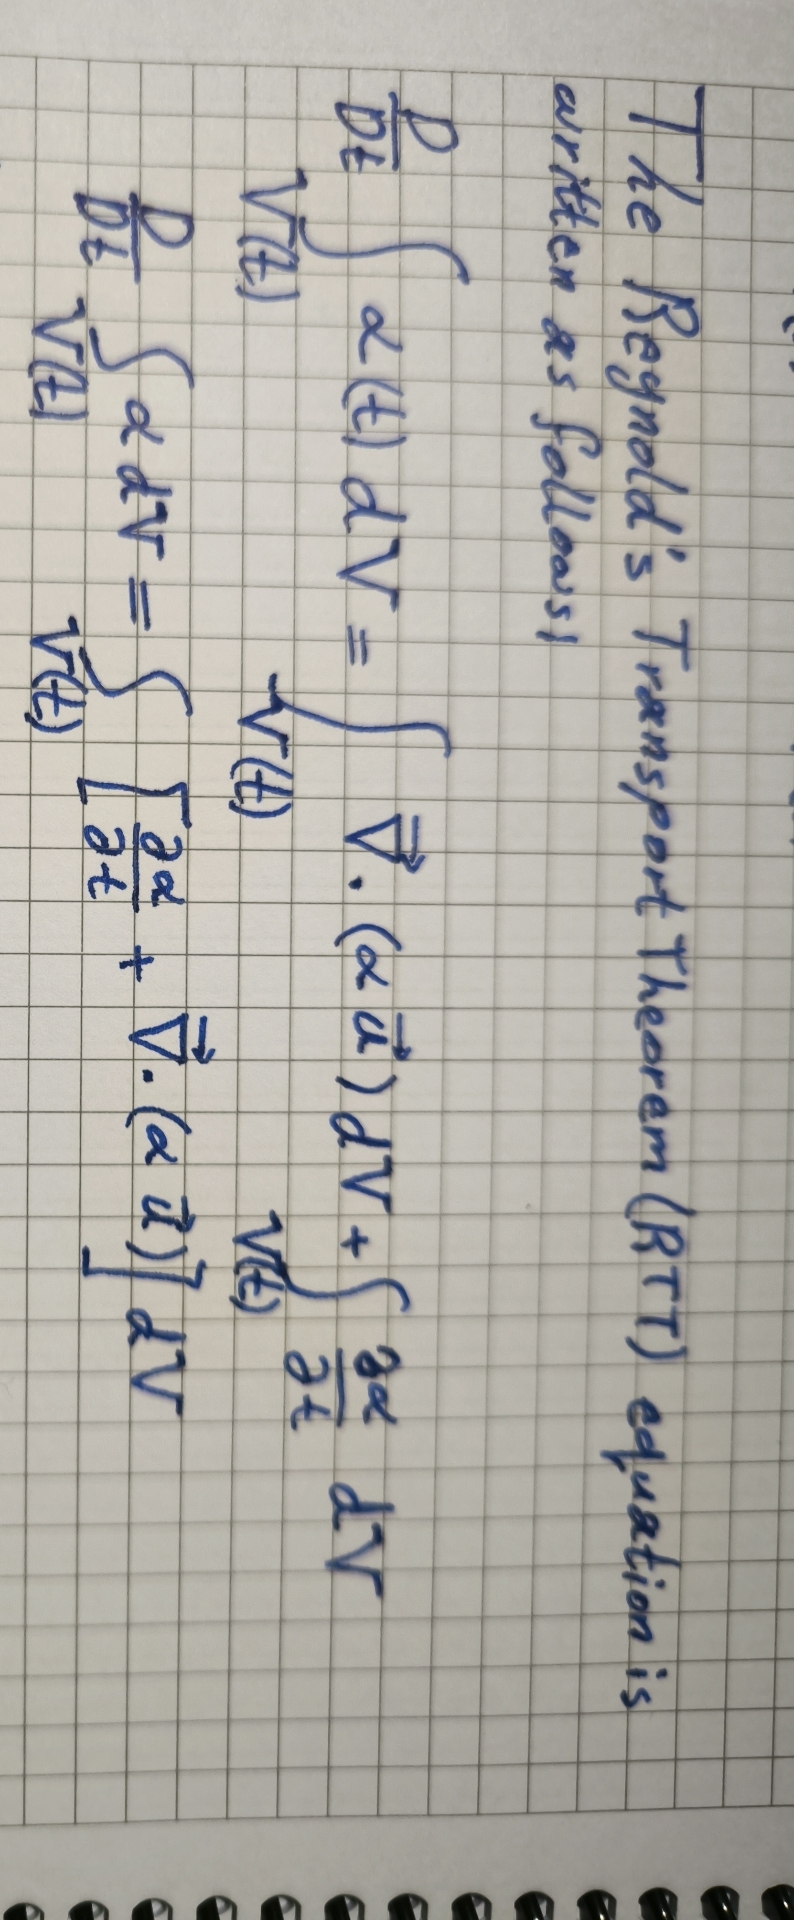 The Reynold's Transport Theorem (RTT) equation is
written as follows:
D/Dt ∫_V(t) α(t) dV = ∫_V(t) ∇⃗ · (α u⃗) dV + ∫_V(t) ∂α/∂t dV
D/Dt ∫_V(t) α dV = ∫_V(t) [∂α/∂t + ∇⃗ · (α u⃗)] dV